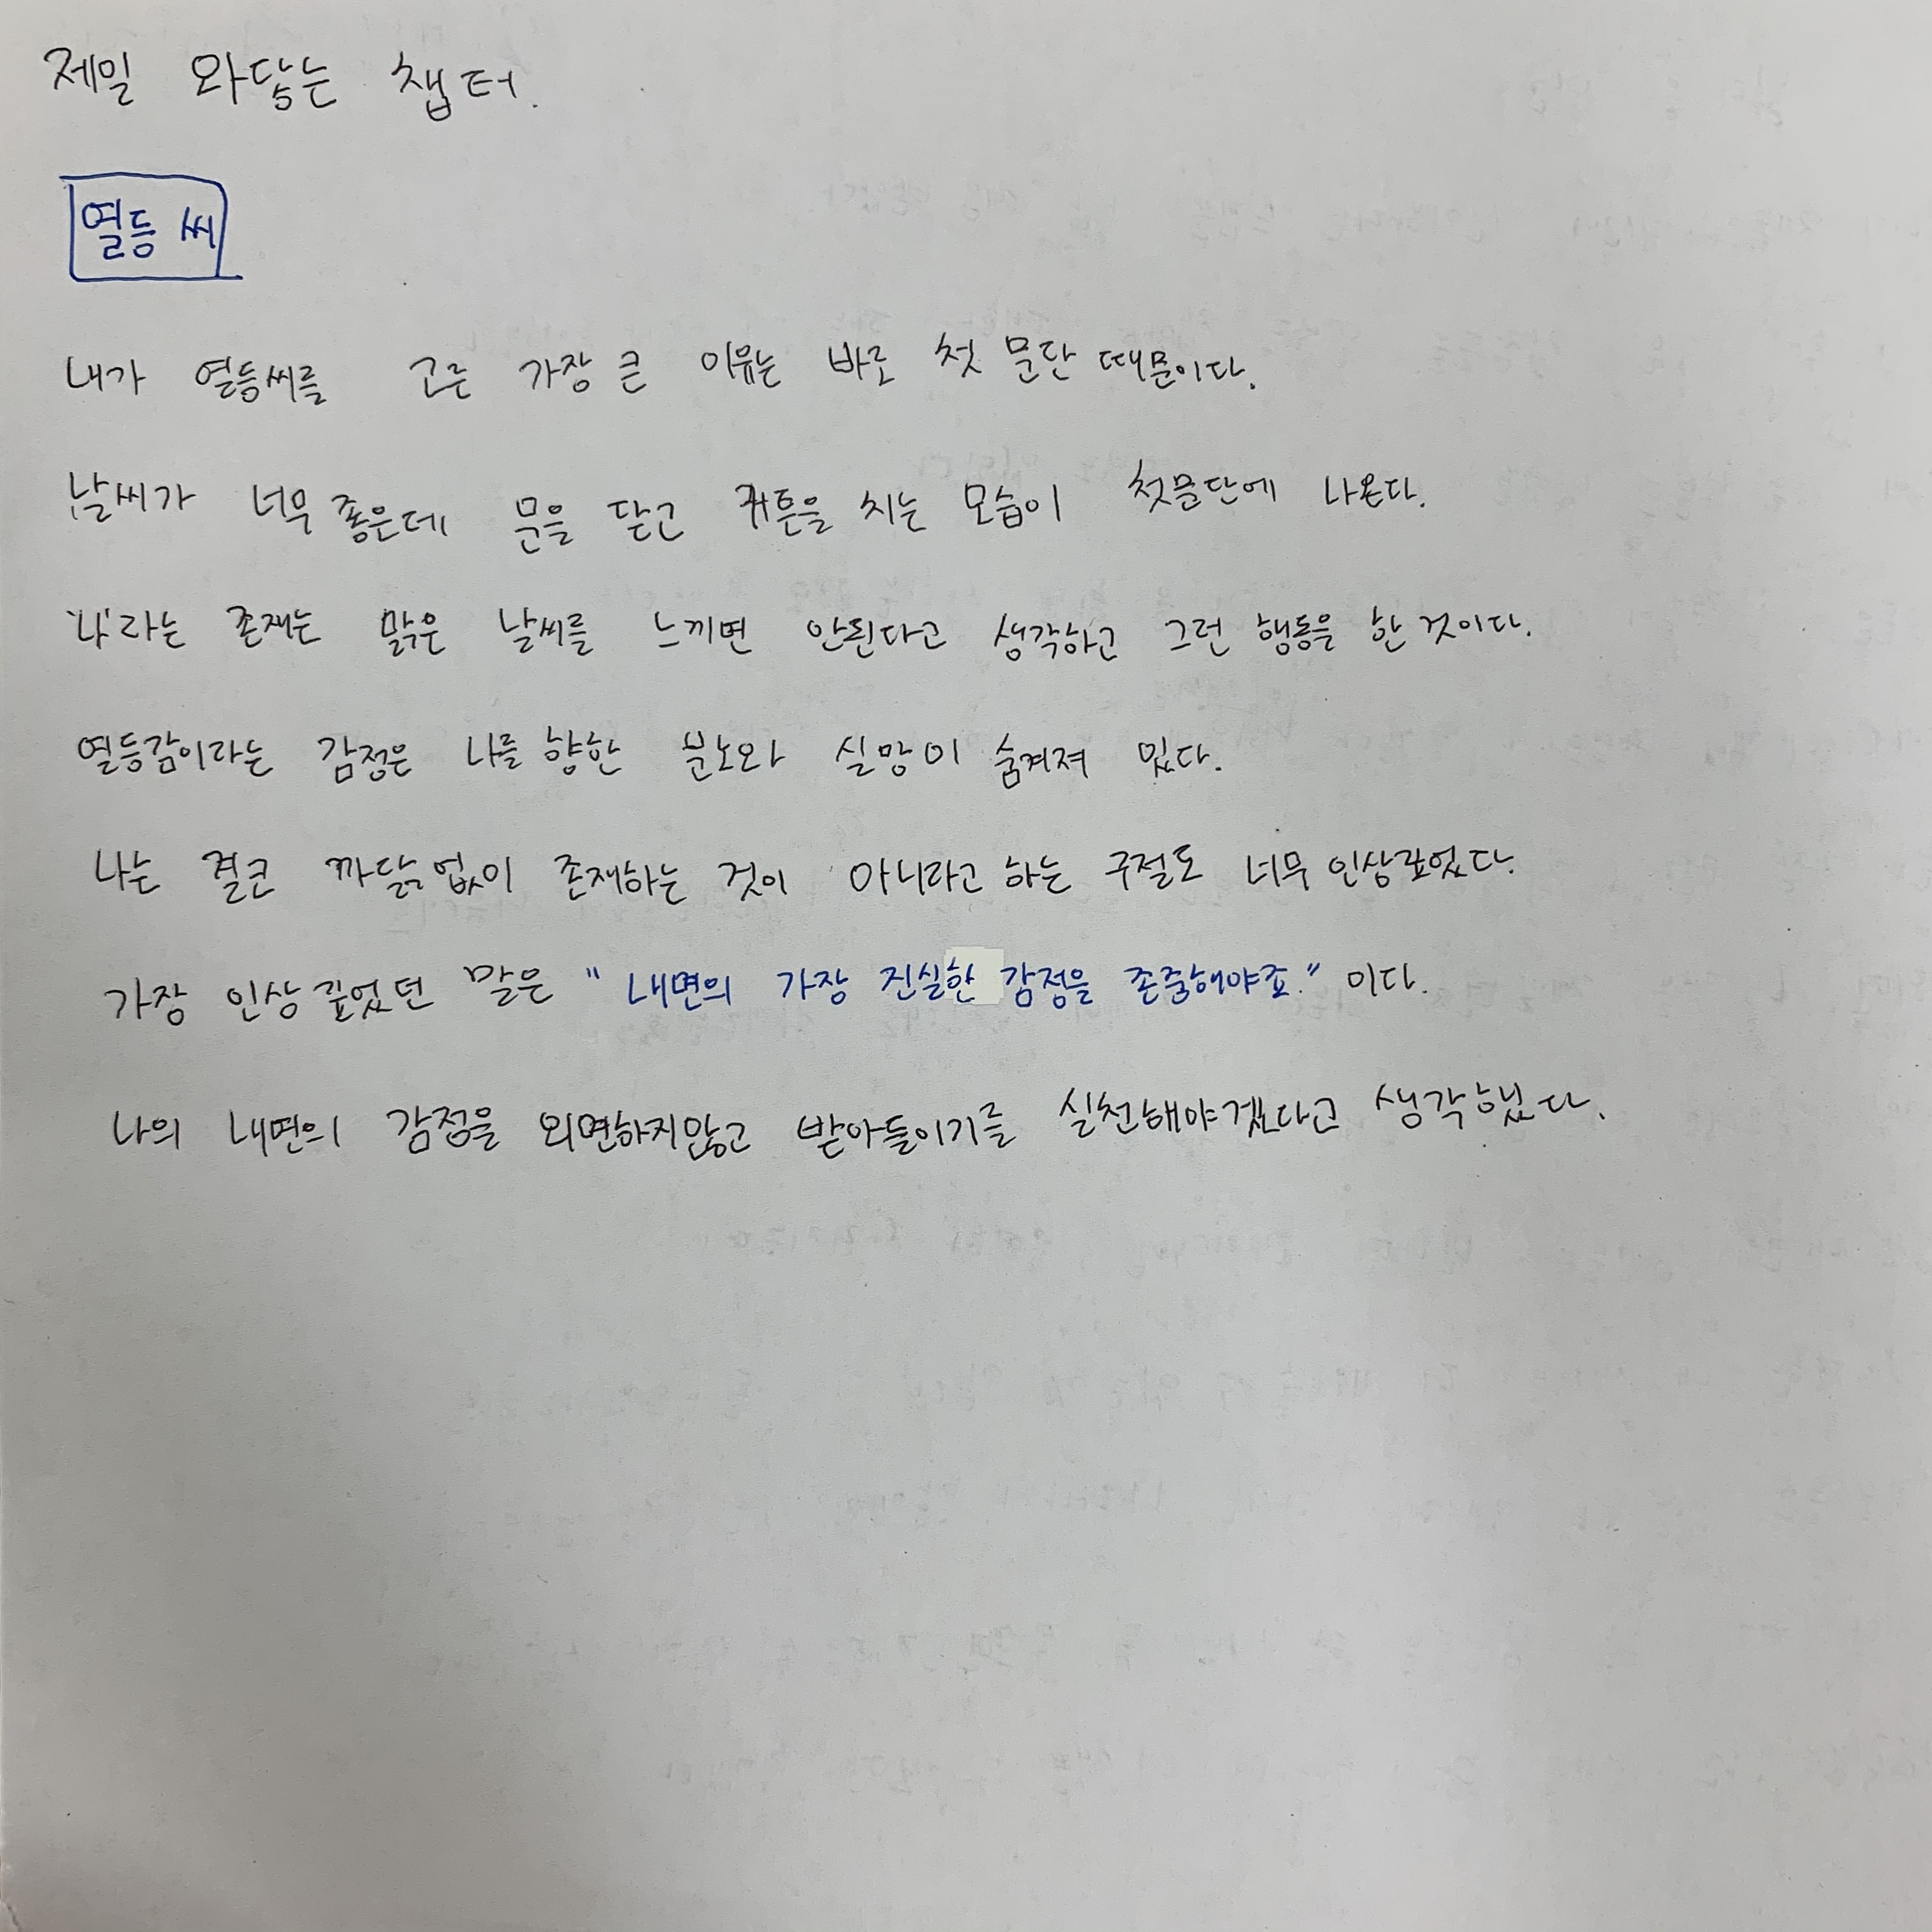 제일 와닿는 챕터.
열등 씨
내가 열등씨를 고른 가장 큰 이유는 바로 첫 문단 때문이다.
날씨가 너무 좋은데 문을 닫고 커튼을 치는 모습이 첫문단에 나온다.
'나'라는 존재는 맑은 날씨를 느끼면 안된다고 생각하고 그런 행동을 한 것이다.
열등감이라는 감정은 나를 향한 분노와 실망이 숨겨져 있다.
나는 결코 까닭없이 존재하는 것이 아니라고 하는 구절도 너무 인상깊었다.
가장 인상 깊었던 말은 "내면의 가장 진실한 감정을 존중해야죠." 이다.
나의 내면의 감정을 외면하지않고 받아들이기를 실천해야겠다고 생각했다.